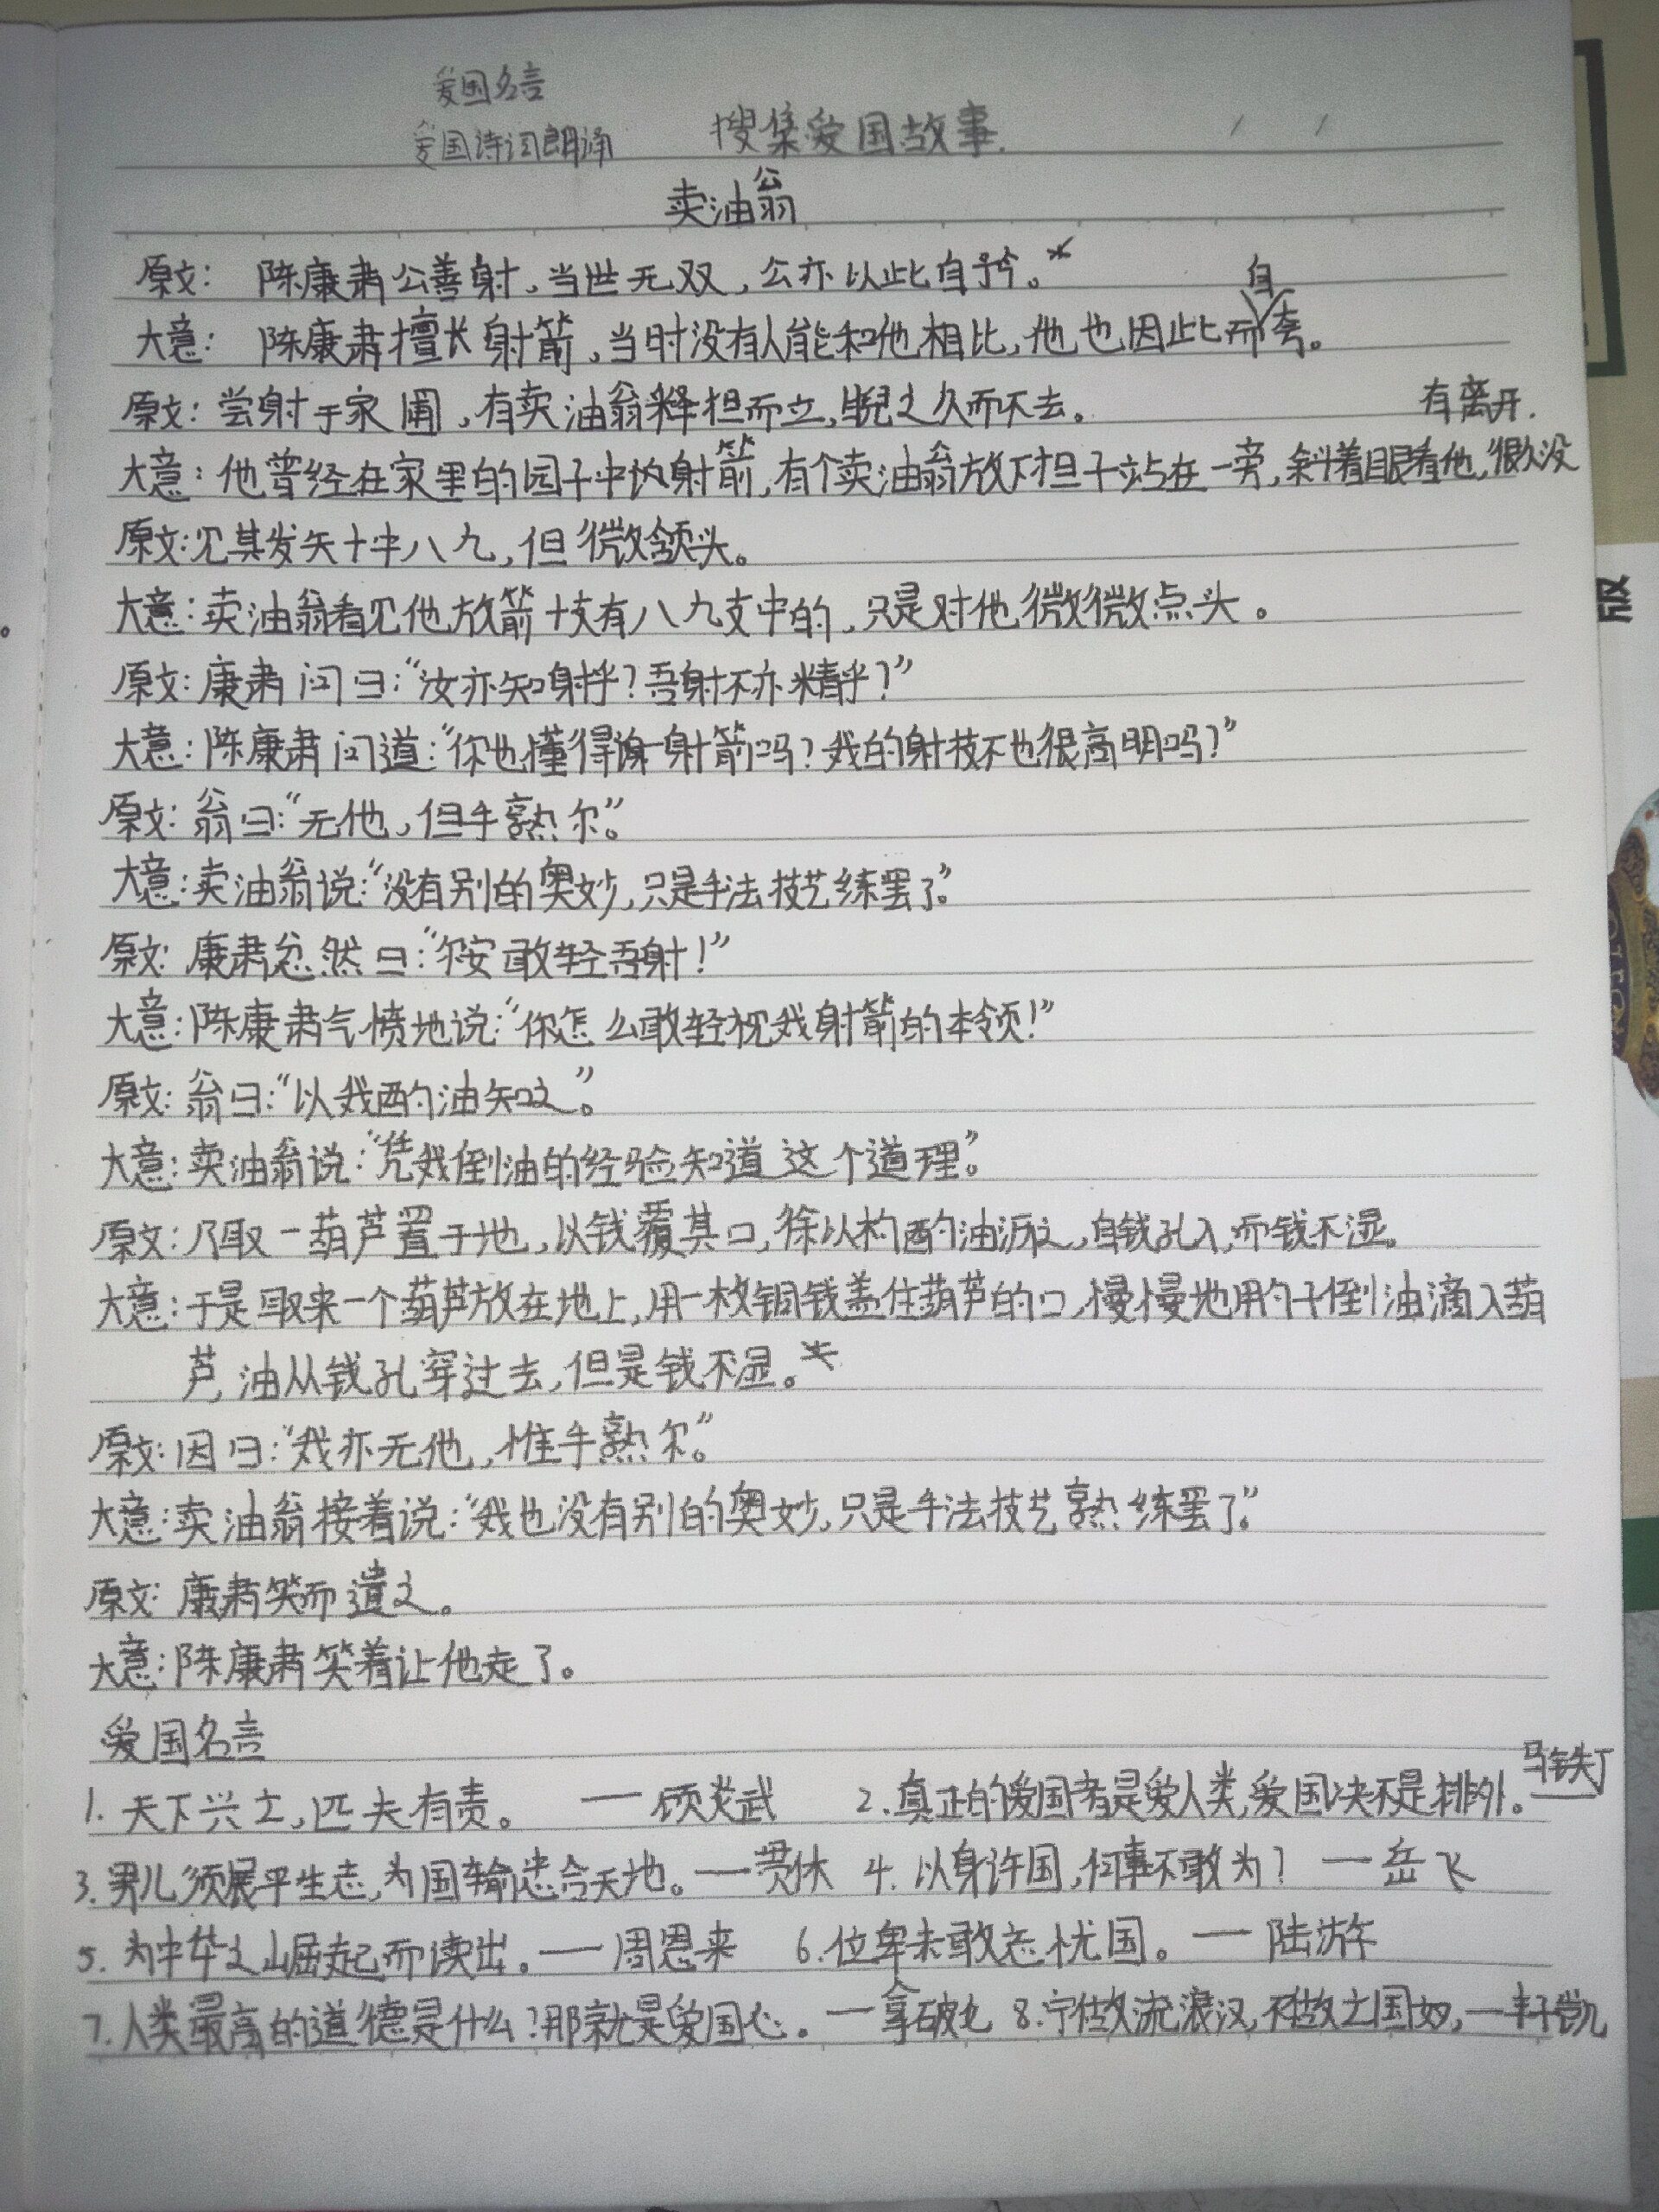 爱国名言
爱国诗词朗诵 搜集爱国故事.
卖油翁
原文: 陈康肃公善射,当世无双,公亦以此自矜。*
大意: 陈康肃擅长射箭,当时没有人能和他相比,他也因此而自夸。
原文: 尝射于家圃,有卖油翁释担而立,睨之久而不去。
大意: 他曾经在家里的园子中射箭,有个卖油翁放下担子站在一旁,斜着眼看他,很久没有离开.
原文:见其发矢十中八九,但微颔头。
大意:卖油翁看见他放箭十支有八九支中的,只是对他微微点头。
原文:康肃问曰:“汝亦知射乎?吾射不亦精乎?”
大意:陈康肃问道:“你也懂得射箭吗?我的射技不也很高明吗?”
原文:翁曰:“无他,但手熟尔”。
大意:卖油翁说:“没有别的奥妙,只是手法技艺练罢了”。
原文:康肃忿然曰:“尔安敢轻吾射!”
大意:陈康肃气愤地说:“你怎么敢轻视我射箭的本领!”
原文:翁曰:“以我酌油知之”。
大意:卖油翁说:“凭我倒油的经验知道这个道理”。
原文:乃取一葫芦置于地,以钱覆其口,徐以杓酌油沥之,自钱孔入,而钱不湿。
大意:于是取来一个葫芦放在地上,用一枚铜钱盖住葫芦的口,慢慢地用勺子倒油滴入葫
芦,油从钱孔穿过去,但是钱不湿。*
原文:因曰:“我亦无他,惟手熟尔”。
大意:卖油翁接着说:“我也没有别的奥妙,只是手法技艺熟练罢了”。
原文:康肃笑而遣之。
大意:陈康肃笑着让他走了。
爱国名言
1. 天下兴亡,匹夫有责。 ——顾炎武 2.真正的爱国者是爱人类,爱国决不是排外。——马铁丁
3.男儿须展平生志,为国输忠合天地。——贯休 4.以身许国,何事不敢为? ——岳飞
5.为中华之崛起而读出。——周恩来 6.位卑未敢忘忧国。——陆游
7.人类最高的道德是什么?那就是爱国心。——拿破仑 8.宁做流浪汉,不做亡国奴,——丰子恺